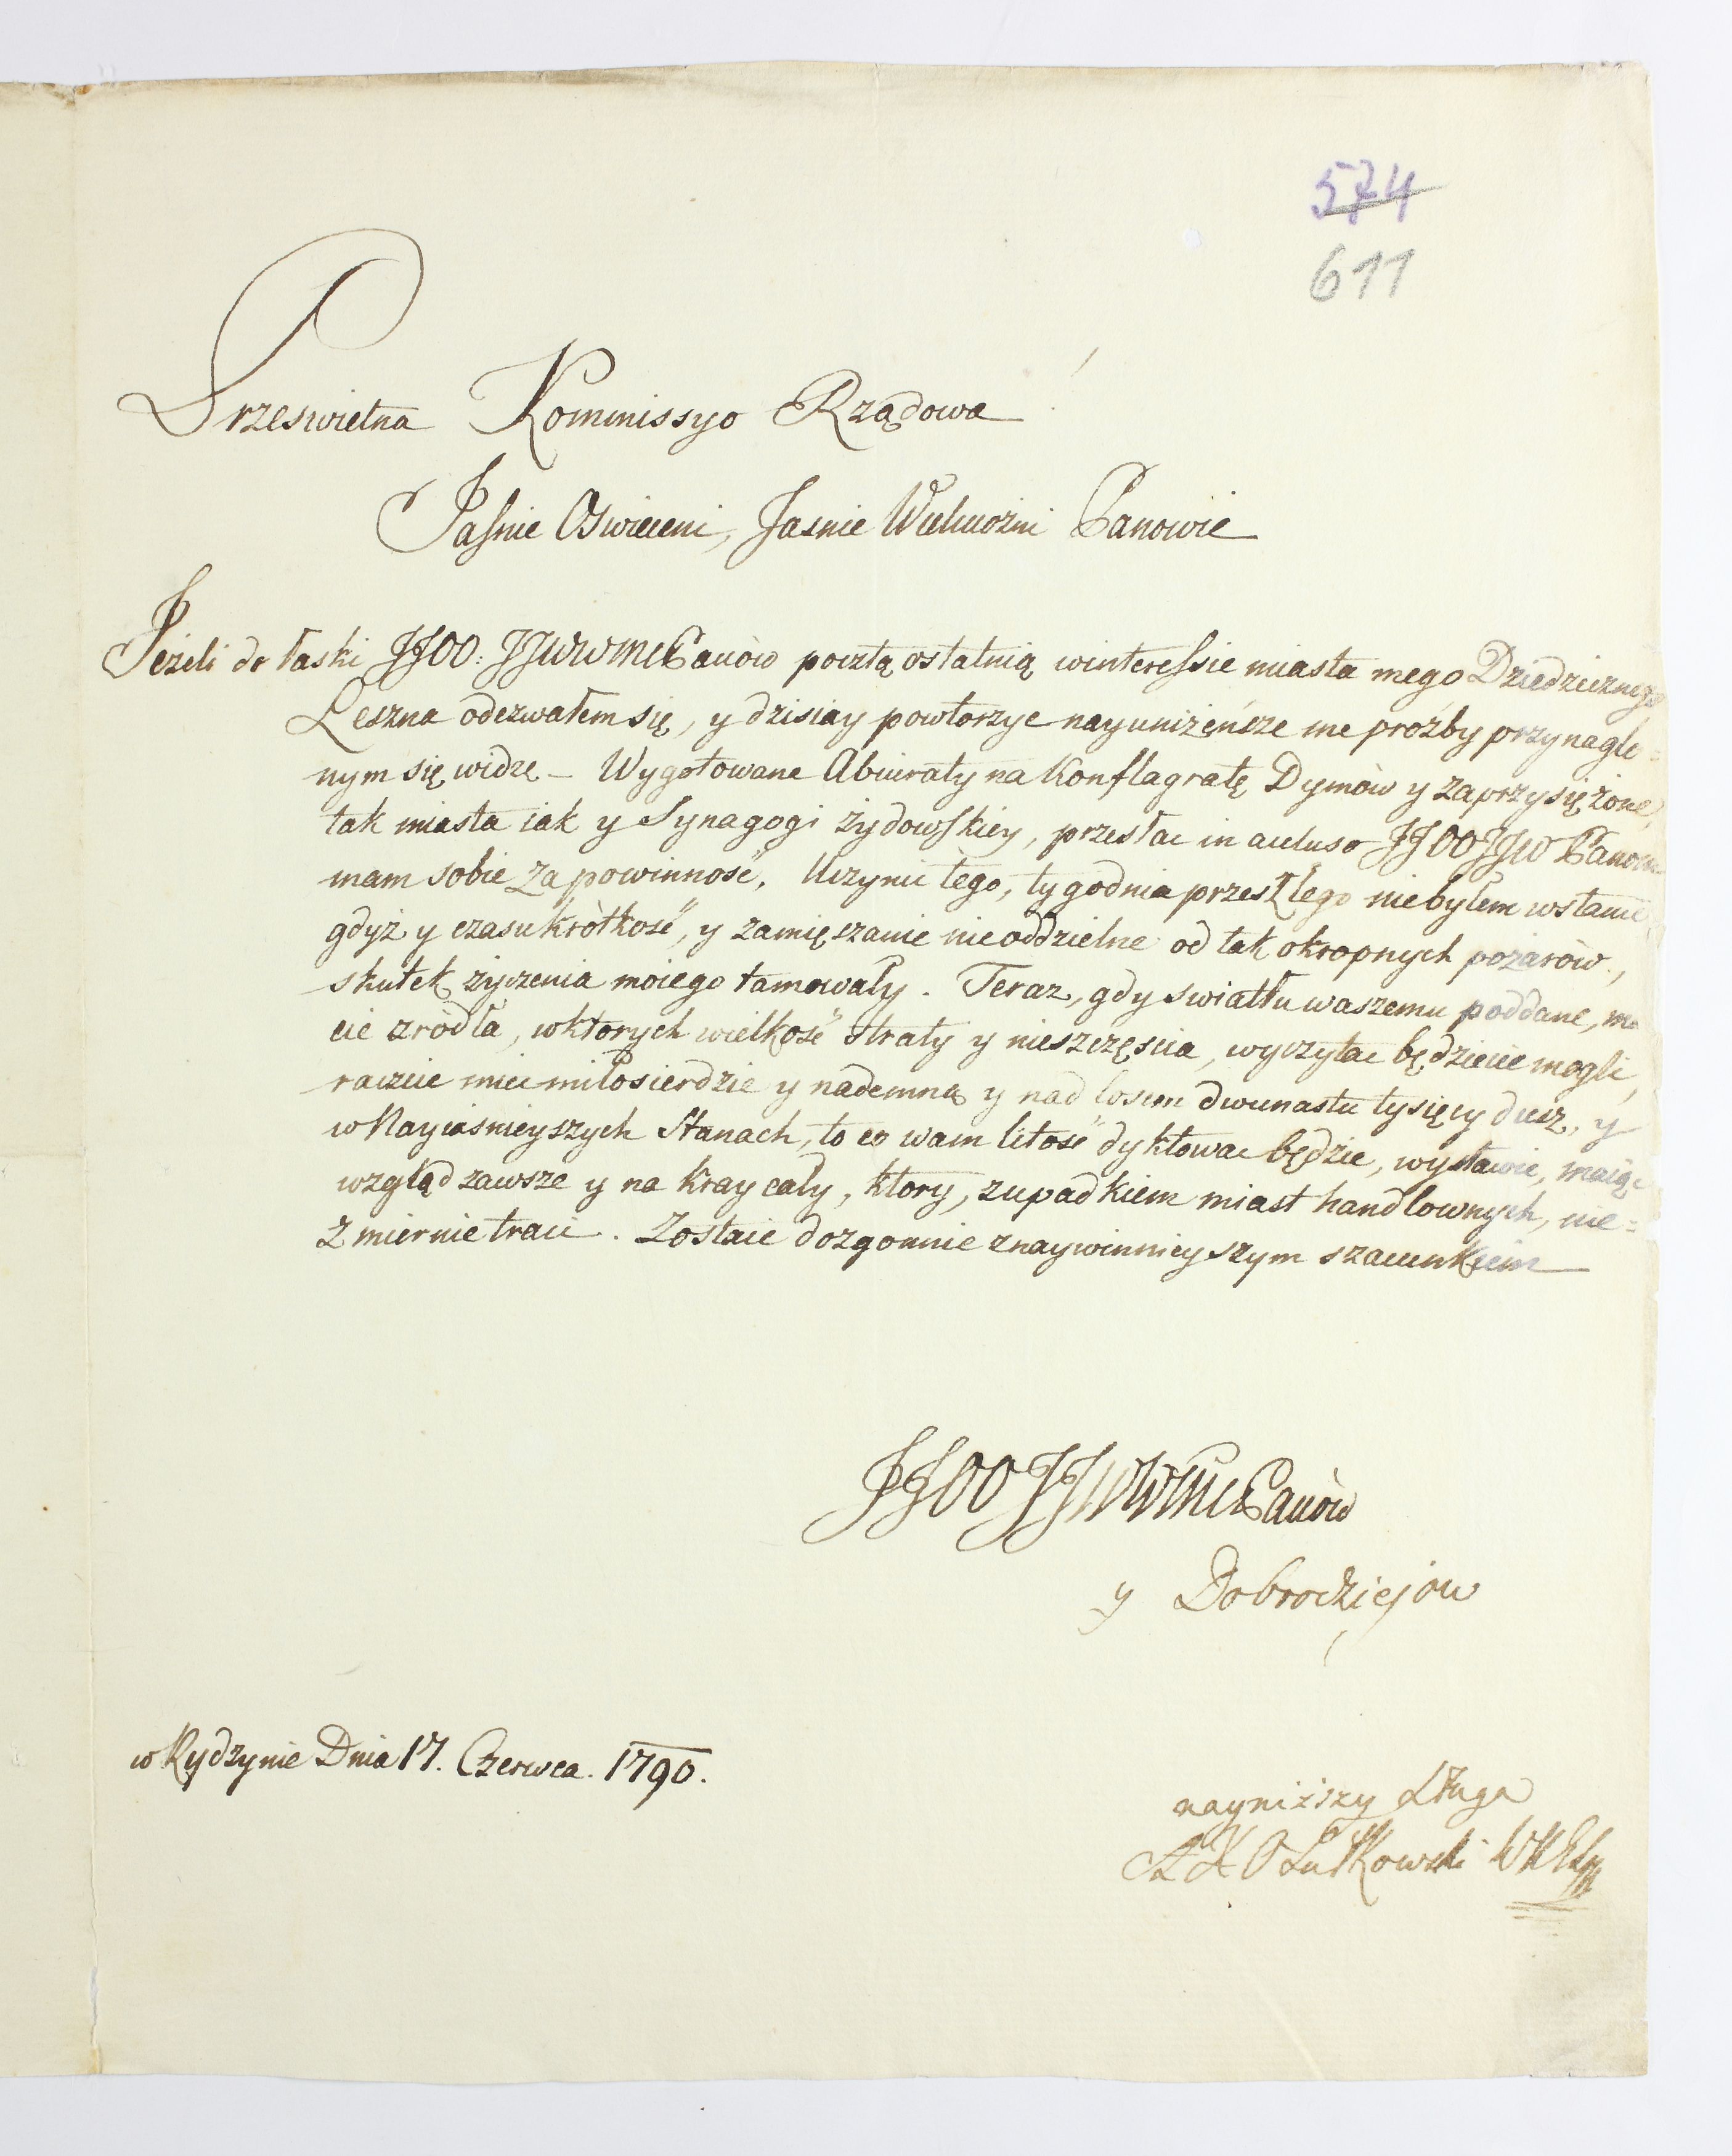 574
611
Przeswietna Kommissyo Rządowa
Jaśnie Oswieceni, Jasnie Wielmożni Panowie
Jeżeli do łaski JJOO: JJWWMciPanów pocztą ostatnią winteressie miasta mego Dziedzicznego
Leszna odezwałem się, y dzisiay powtorzyc nayuniżeńsze me proźby przynaglo=
nym się widzę – Wygotowane Abiuraty na Konflagratę Dymów y zaprzysiężone,
tak miasta iak y Synagogi żydowskiey, przesłac in accluso JJOOJJW Panom
mam sobie za powinność. Uczynic tego, tygodnia przeszłego niebyłem wstanie
gdyż y czasu krótkość, y zamięszanie nieoddzielne od tak okropnych pożarów,
skutek życzenia moiego tamowały. Teraz, gdy swiatłu waszemu poddane, ma
cie zródła, wktorych wielkość straty y nieszczęscia, wyczytac będziecie mogli,
raczcie miec miłosierdzie y nademną y nad losem dwunastu tysięcy dusz, y
w Nayiasnieyszych Stanach, to co wam litość dyktowac będzie, wystawic, maiąc
wzgląd zawsze y na kray cały, ktory, zupadkiem miast handlownych, nie=
zmiernie traci. Zostaie dozgonnie znaywinnieyszym szacunkiem
JJOO JJWWMciPanów
y Dobrodziejow
w Rydzynie Dnia 17. Czerwca. 1790.
nayniższy sługa
AXSułkowski WK